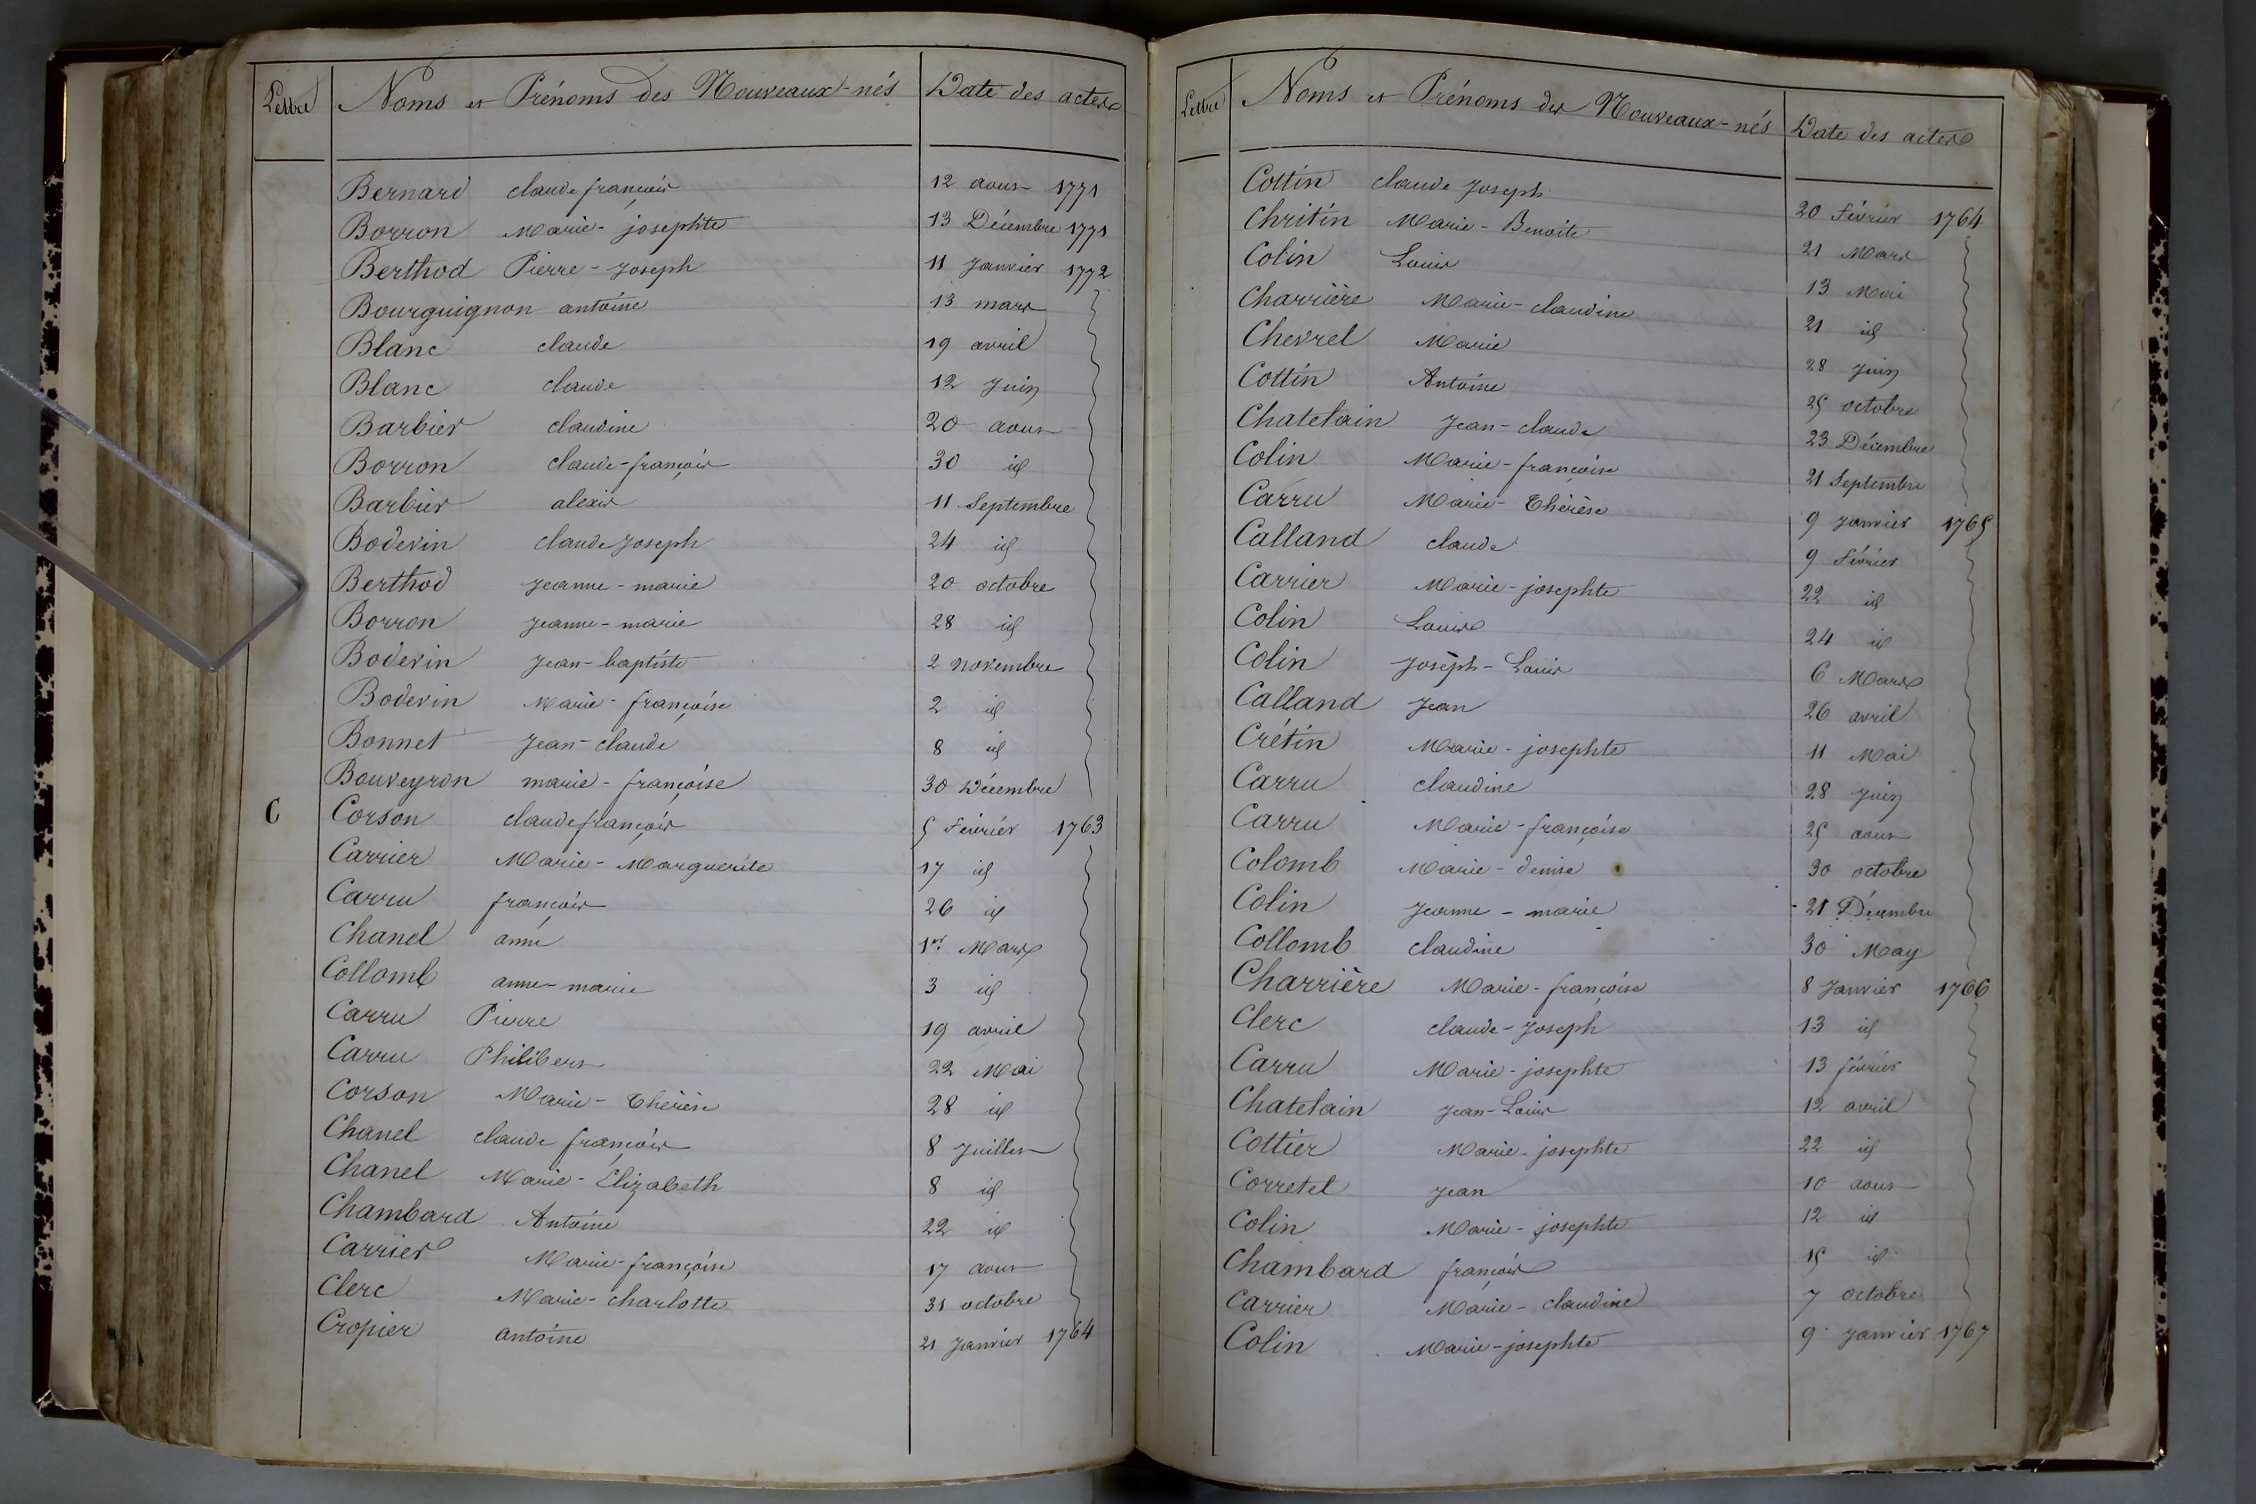 Lettre Noms et Prénoms des Nouveaux-nés Date des actes
Bernard claude françois 12 aout 1771
Borron Marie-josephte 13 Décembre 1771
Berthod Pierre-Joseph 11 Janvier 1772
Bourguignon antoine 13 mars
Blanc claude 19 avril
Blanc claude 12 Juin
Barbier claudine 20 aout
Borron claude-françois 30 id
Barbier alexis 11 Septembre
Bodevin claude Joseph 24 id
Berthod Jeanne-marie 20 octobre
Borron Jeanne-marie 28 id
Bodevin Jean-baptiste 2 novembre
Bodevin Marie-françoise 2 id
Bonnet Jean-claude 8 id
Bouveyron marie-françoise 30 Décembre
C Corson claude françois 5 Février 1763
Carrier Marie-Marguerite 17 id
Carru françois 26 id
Chanel anne 1er Mars
Collomb anne-marie 3 id
Carru Pierre 19 avril
Carru Philibert 22 Mai
Corson Marie-Thérèse 28 id
Chanel claude françois 8 Juillet
Chanel Marie-Elizabeth 8 id
Chambard Antoine 22 id
Carrier Marie-françoise 17 aout
Clerc Marie-charlotte 31 octobre
Cropier antoine 21 Janvier 1764
Lettre Noms et Prénoms des Nouveaux-nés Date des actes
Cottin claude Joseph 20 Février 1764
Chritin Marie-Benoite 21 Mars
Colin Louis 13 Mai
Charrière Marie-claudine 21 id
Chevrel Marie 28 Juin
Cottin Antoine 25 octobre
Chatelain Jean-claude 23 Décembre
Colin Marie-françoise 21 Septembre
Carru Marie-Thérèse 9 Janvier 1765
Calland claude 9 Février
Carrier Marie-josephte 22 id
Colin Louis 24 id
Colin Joseph-Louis 6 Mars
Calland Jean 26 avril
Crétin Marie-josephte 11 Mai
Carru claudine 28 Juin
Carru Marie-françoise 25 aout
Colomb Marie-denise 30 octobre
Colin Jeanne-marie 21 Décembre
Collomb claudine 30 May
Charrière Marie-françoise 8 Janvier 1766
Clerc claude-Joseph 13 id
Carru Marie-josephte 13 février
Chatelain Jean-Louis 12 avril
Cottier Marie-josephte 22 id
Corretel Jean 10 aout
Colin Marie-josephte 12 id
Chambard françois 15 id
Carrier Marie-claudine 7 octobre
Colin Marie-josephte 9 Janvier 1767